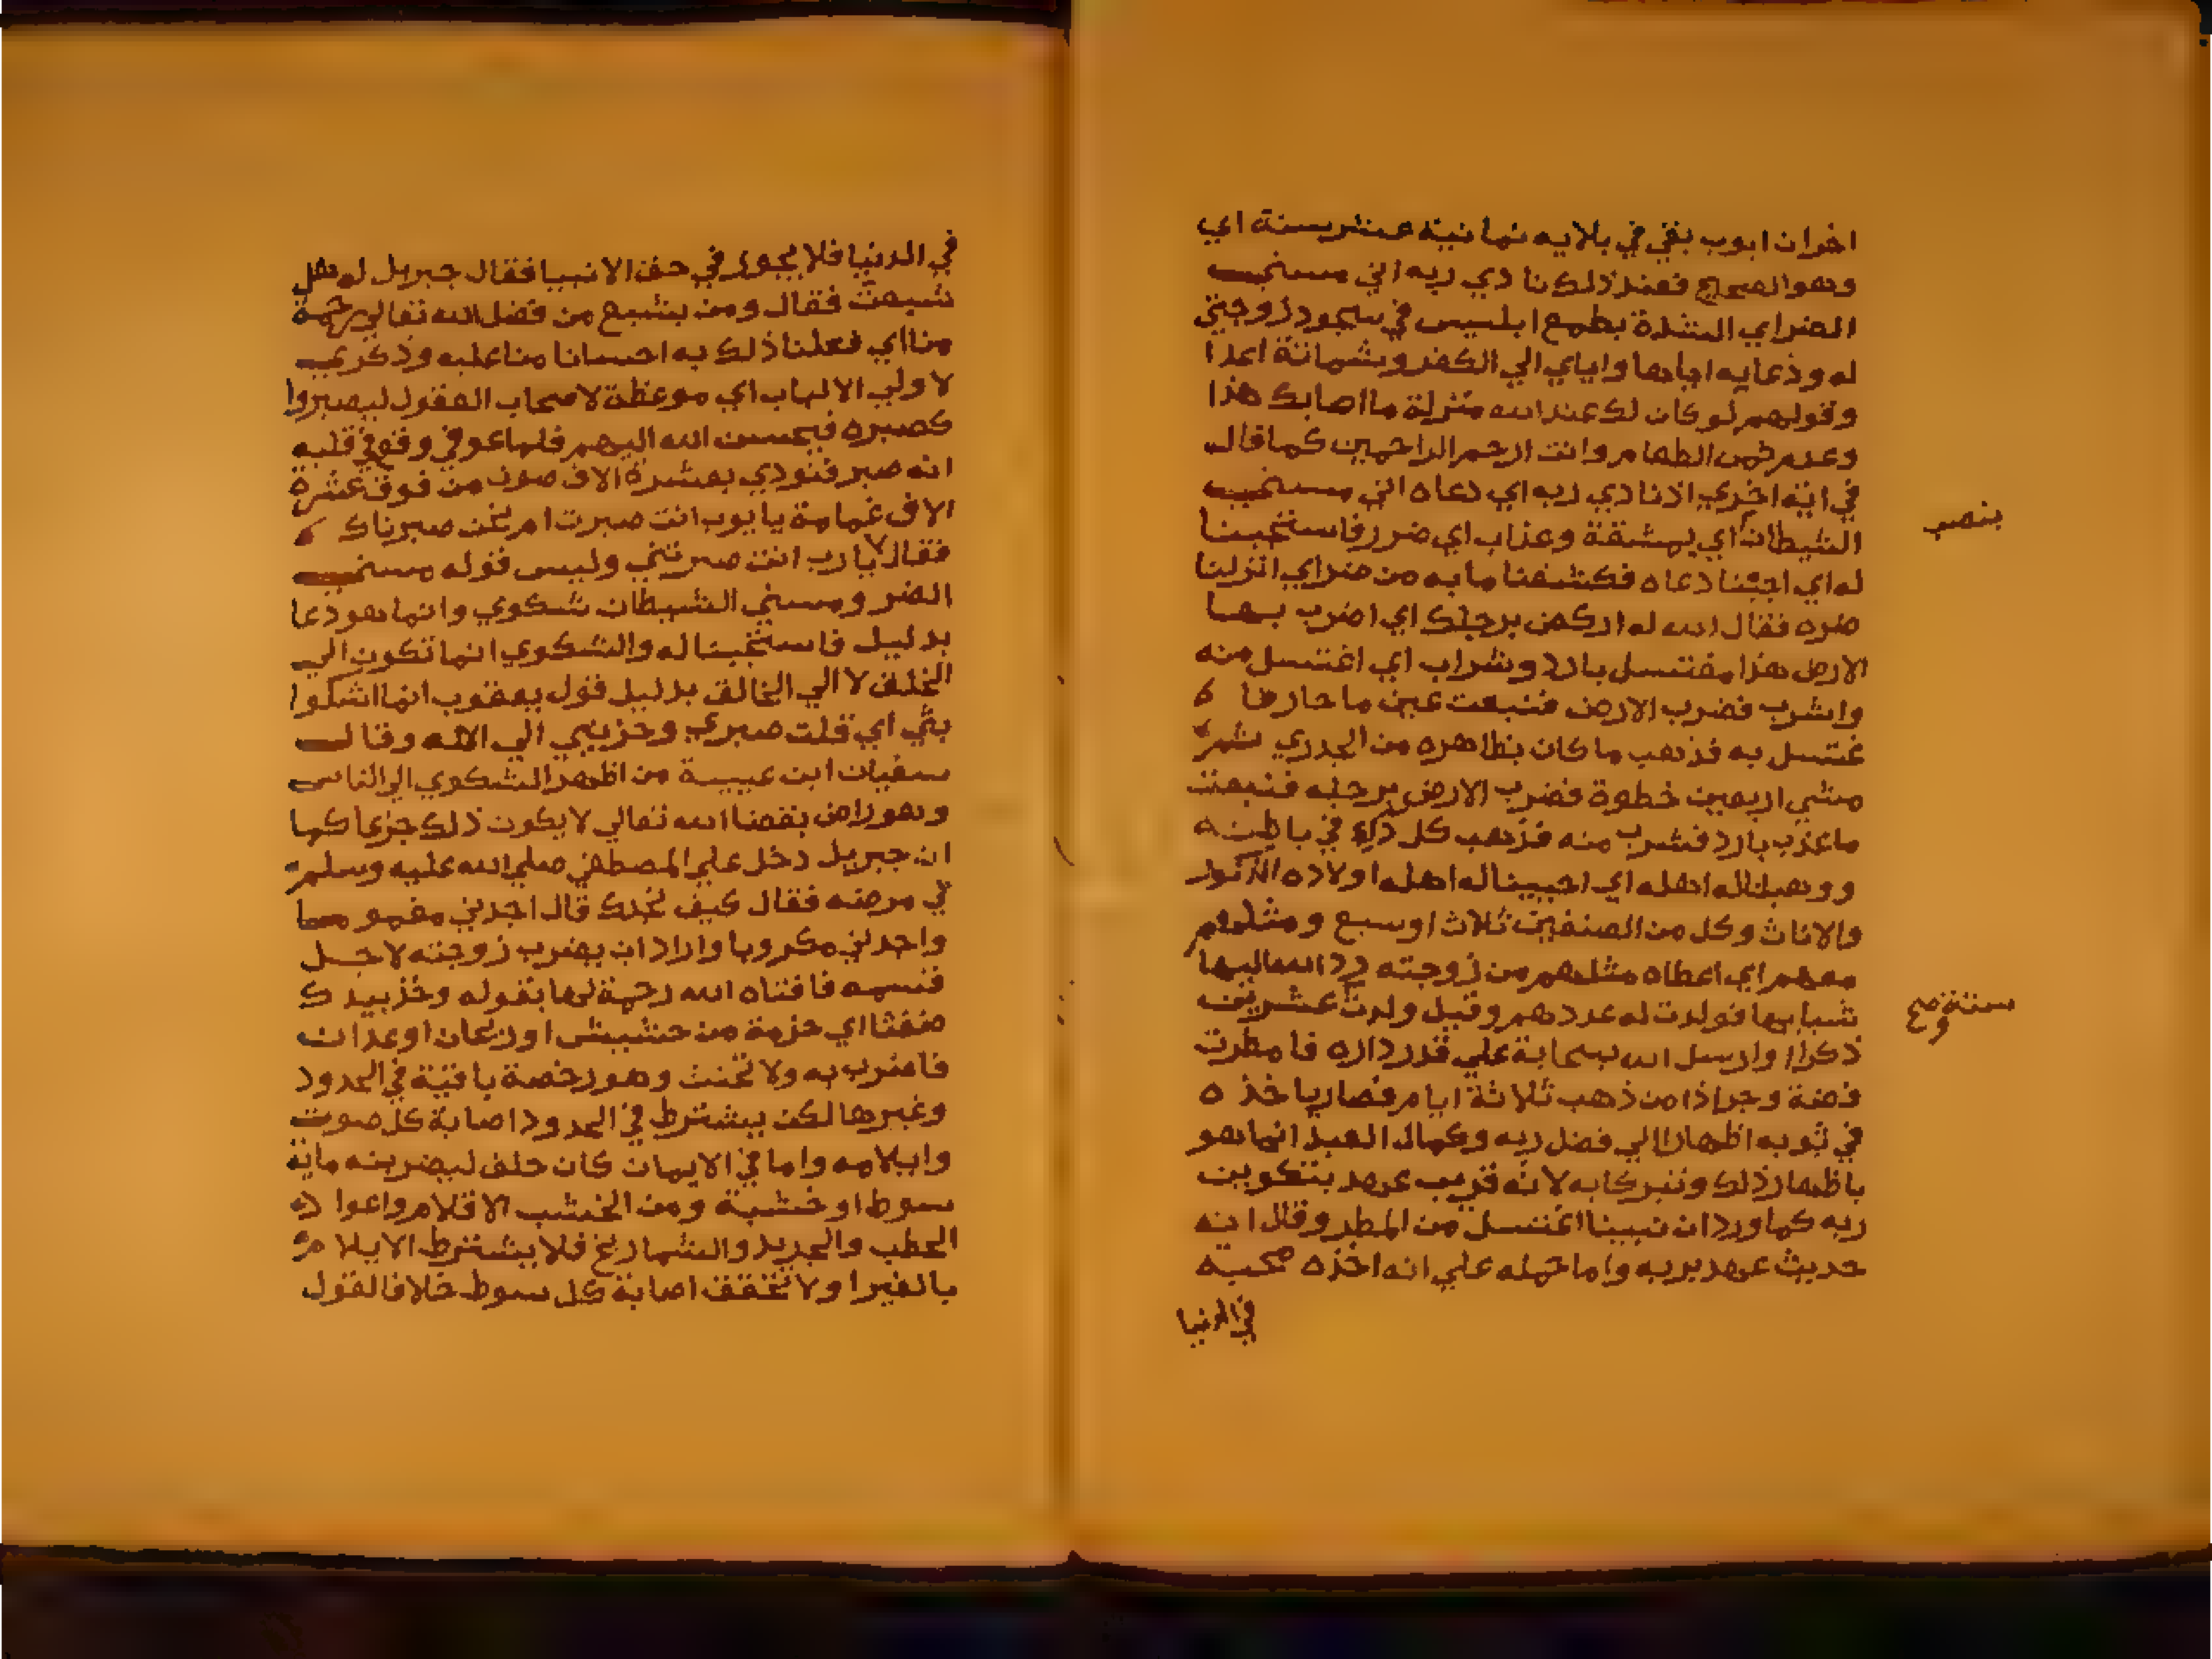 اخران ايوب بقي في بلايه ثمانية عشر سنة اي
وهو الصحيح فعند ذلك نادي ربه اني مسني
الضر اي الشدة بطمع ابليس في سجود زوجتي
له ودعايه اياها واياي الي الكفر وبشماتة اعدا
وقولهم لو كان لك عند الله منزلة ما اصابك هذا
وعدم الطعام وانت ارحم الراحمين كما قال
في اية اخري اذ نادي ربه اي دعاه اني مسني
الشيطان اي بمشقة وعذاب اي ضرر فاستجبنا
بنصب
له اي اجبنا دعاه فكشفنا ما به من ضر اي انزلنا
ضره فقال الله له اركض برجلك اي اضرب بها
الارض هذا مغتسل بارد وشراب اي اغتسل منه
واشرب فضرب الارض فنبعت عين ما حار فا
غتسل به فذهب ما كان بظاهره من الجدري ثم
مشي اربعين خطوة فضرب الارض برجله فنبعت
ما عذب بارد فشرب منه فذهب كل داء في باطنه
ووهبنا له اهله اي احيينا له اهله اولاده الذكور
والاناث وكل من الصنفين ثلاث او سبع ومثلهم
معهم اي اعطاه مثلهم من زوجته رد الله اليها
شبابها فولدت له عددهم وقيل ولدت عشرين
ستة و صح
ذكرا وارسل الله سحابة علي قدر داره فامطرت
فضة وجرادا من ذهب ثلاثة ايام فصار ياخذه
في ثوبه اظهارا الي فضل ربه وكمال العبد انما هو
باظهار ذلك وتبركا به لانه قريب عهد بتكوين
ربه كما ورد ان نبينا اغتسل من المطر وقال انه
حديث عهد بربه واما حمله علي انه اخذه محبة
في الدنيا
في الدنيا فلا يجوز في حق الانبيا فقال جبريل له هل
شبعت فقال ومن يشبع من فضل الله تعالي رحمة
منا اي فعلنا ذلك به احسانا منا عليه وذكري
لاولي الالباب اي موعظة لاصحاب العقول ليصبروا
كصبره فيحسن الله اليهم فلما عوفي وقع في قلبه
انه صبر فنودي بعشرة الاف صوت من فوق عشرة
الاف غمامة يا يوب انت صبرت ام نحن صبرناك
فقال لا يا رب انت صبرتني وليس قوله مسني
الضر ومسني الشيطان شكوي وانما هو دعا
بدليل فاستجبنا له والشكوي انما تكون الي
الخلق لا الي الخالق بدليل قول يعقوب انما اشكوا
بثي اي قلت صبري وحزني الي الله وقال
سفيان ابن عيينة من اظهر الشكوي الي الناس
وهو راض بقضا الله تعالي لا يكون ذلك جزعا كما
ان جبريل دخل علي المصطفي صلي الله عليه وسلم
في مرضه فقال كيف تجدك قال اجدني مغموما
واجدني مكروبا واراد ان يضرب زوجته لاجل
قسمه فافتاه الله رحمة لها بقوله وخذ بيدك
ضغثا اي حزمة من حشيش او ريحان او عدان
فاضرب به ولا تحنث وهو رخصة باقية في الحدود
وغيرها لكن يشترط في الحدود اصابة كل صوت
وايلامه واما في الايمان كان حلف ليضربنه ماية
سوط او خشبة ومن الخشب الاقلام واعواد
الحطب والجريد والشماريخ فلا يشترط الايلام
بالغير ولا تحقق اصابة كل سوط خلافا لقول